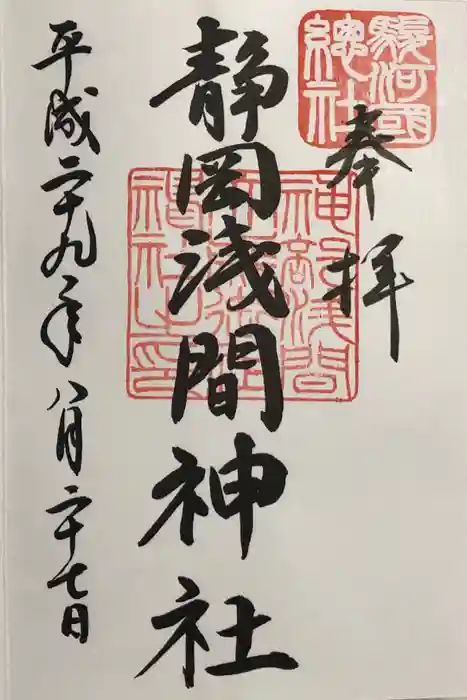 駿河國
總社
奉拝
静岡浅間神社
平成二十九年八月二十七日